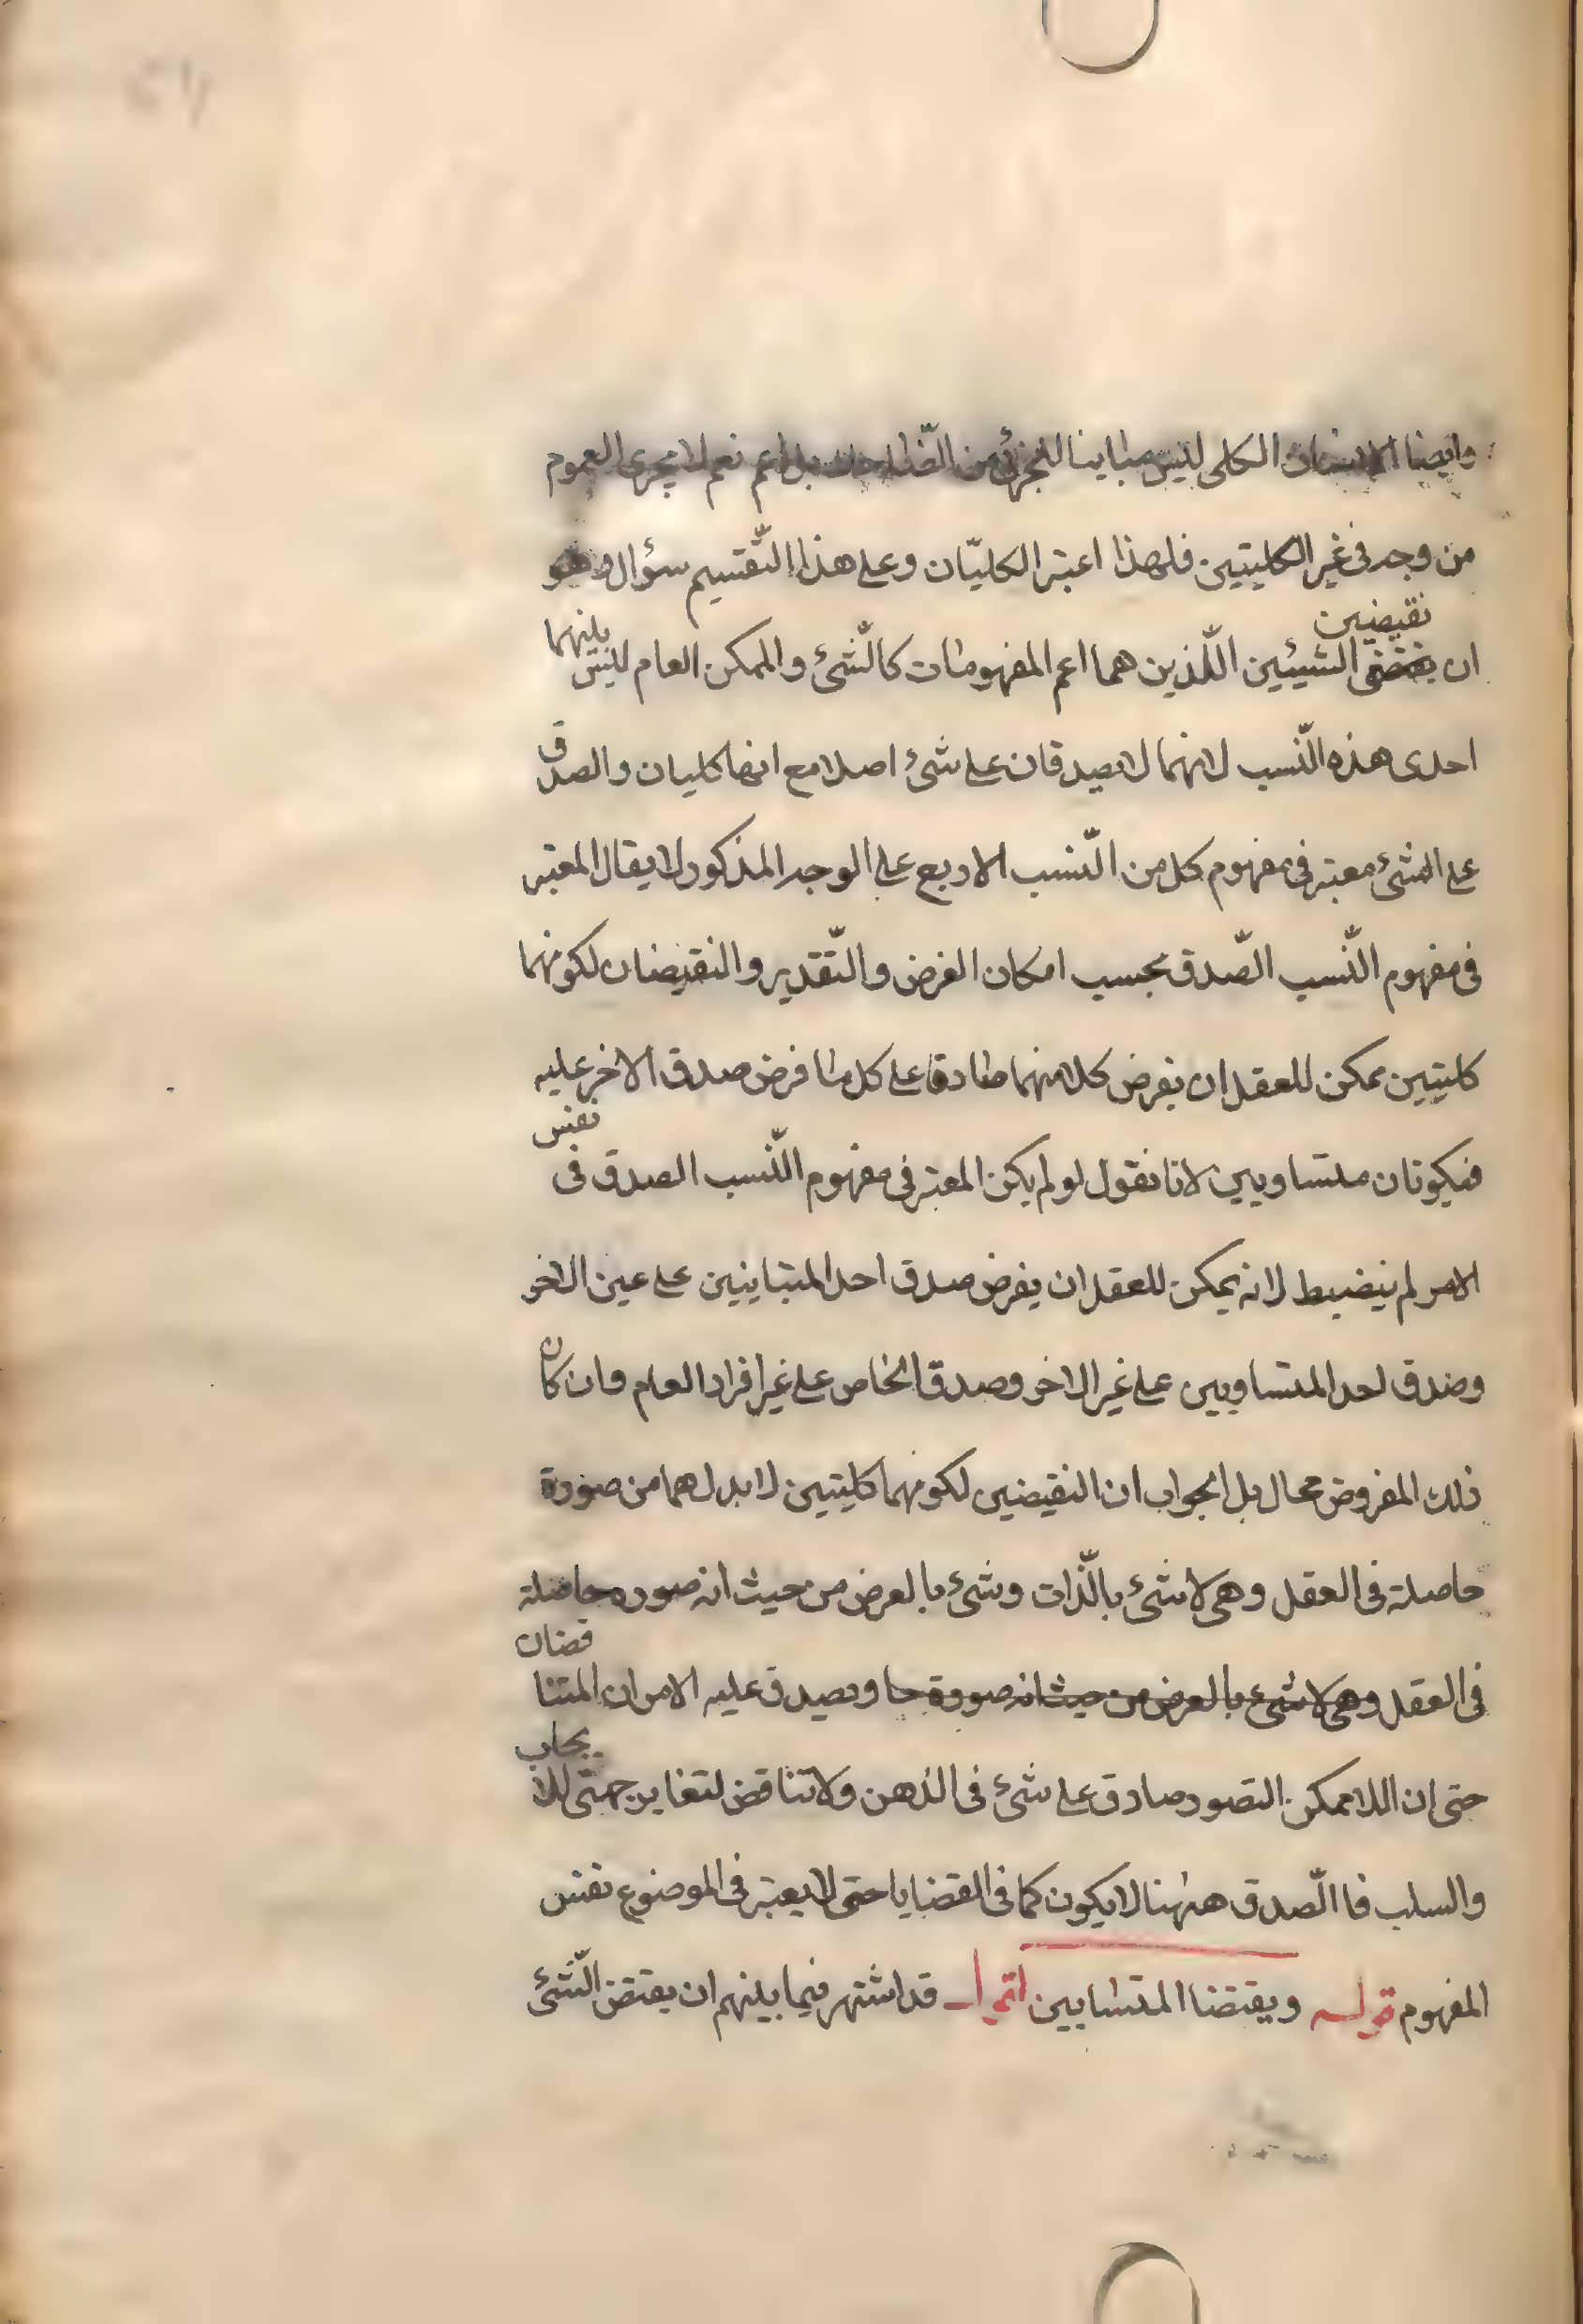 وايضا الانسان الكلى ليس مباينا للجزئى من الضاحك بل اعم نعم لا يجرى العموم
من وجه فى غير الكليتين فلهذا اعتبر الكليّان وعلى هذا التّقسيم سؤال وهو
ان نقيضين الشيئين اللّذين هما اعم المفهومات كالشّئ والممكن العام ليس بينهما
احدى هذه النّسب لانهما لا يصدقان على شئ اصلا مع انها كليان والصدق
على الشئ معتبر فى مفهوم كل من النّسب الاربع على الوجه المذكور لا يقال المعتبر
فى مفهوم النّسب الصّدق بحسب امكان الفرض والتّقدير والنقيضان لكونهما
كليتين يمكن للعقل ان يفرض كلا منهما صادقا على كل ما فرض صدق الاخر عليه
فيكونان متساويين لانا نقول لو لم يكن المعتبر فى مفهوم النّسب الصدق فى نفس
الامر لم ينضبط لانه يمكن للعقل ان يفرض صدق احد المتباينين على عين الاخر
وصدق احد المتساويين على غير الاخر وصدق الخاص على غير افراد العام وان كان
ذلك المفروض محال بل الجواب ان النقيضين لكونهما كليتين لا بد لهما من صورة
حاصلة فى العقل وهى لا شئ بالّذات وشئ بالعرض من حيث انه صوره حاصلة
فى العقل وهى لا شئ بالعرض من حيث انه صورة حا ويصدق عليه الامران المتناقضان
حتى ان اللاممكن التصور صادق على شئ فى الذهن ولا تناقض لتغاير جهتى للايجاب
والسلب فاالّصدق ههنا لا يكون كما فى القضايا حتى لا يعتبر فى الموضوع نفس
المفهوم قوله ويقتضا المتشابين اقول قد اشتهر فيما بينهم ان يقتض الشّئ